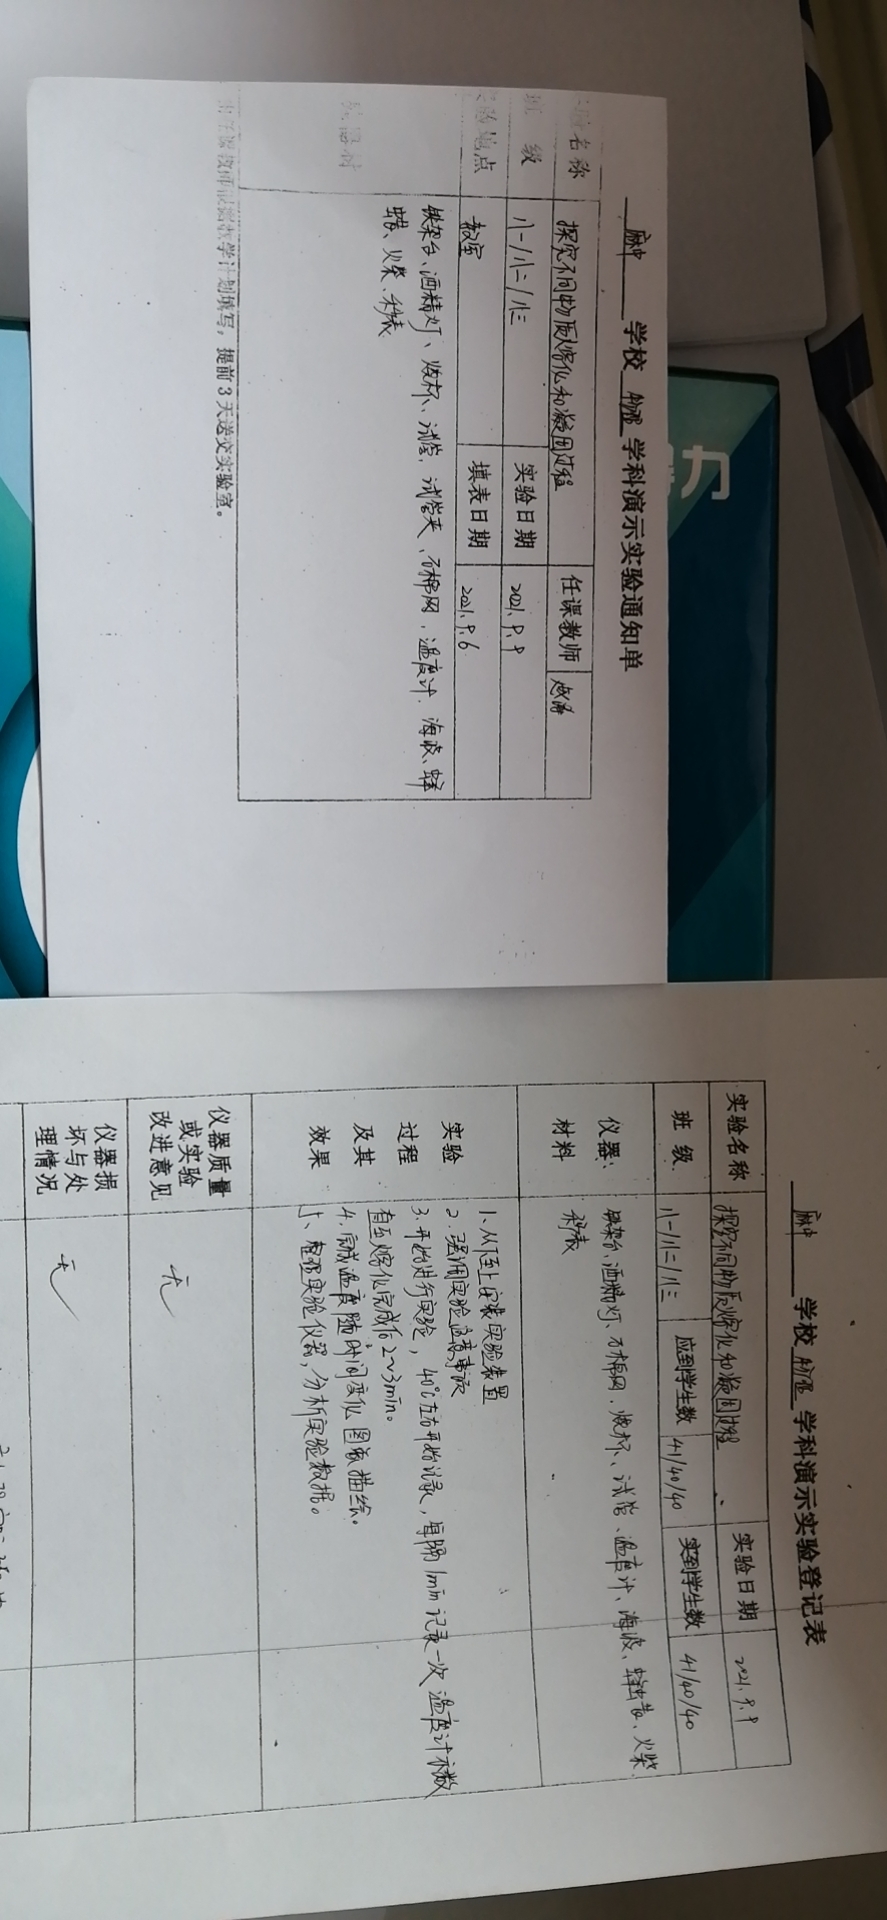 麻中 学校 物理 学科演示实验通知单
实验名称 探究不同物质熔化和凝固过程 任课教师
班 级 八一/八二/八三 实验日期 2021.9.9
实验地点 教室 填表日期 2021.9.6
铁架台、酒精灯、烧杯、试管、试管夹、石棉网、温度计、海波、蜂
蜡、火柴、秒表
提前3天送交实验室。
力
麻中 学校 物理 学科演示实验登记表
实验名称 探究不同物质熔化和凝固过程 实验日期 2021.9.9
班 级 八一/八二/八三 应到学生数 41/40/40 实到学生数 41/40/40
仪器:
材料
铁架台、酒精灯、石棉网、烧杯、试管、温度计、海波、蜂蜡、火柴、
秒表
实验
过程
及其
效果
1、从下至上安装实验装置
2、强调实验注意事项
3、开始进行实验,40℃左右开始记录,每隔1min记录一次温度计示数
直至熔化完成后2~3min。
4、完成温度随时间变化图象描绘。
5、整理实验仪器,分析实验数据。
仪器质量
或实验
改进意见
无
仪器损
坏与处
理情况
无